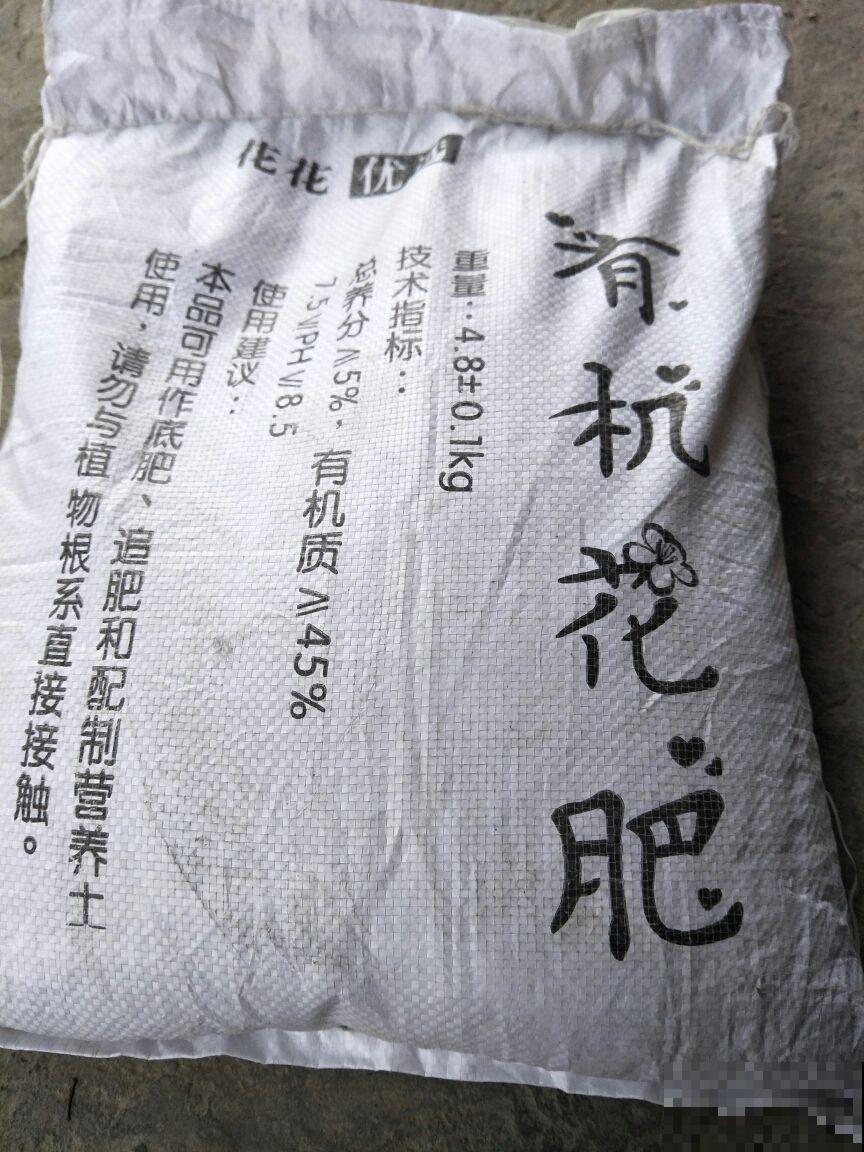 花花优
有机花肥
重量:4.8±0.1kg
技术指标:
总养分≥5%,有机质≥45%
7.5≤PH≤8.5
使用建议:
本品可用作底肥、追肥和配制营养土
使用,请勿与植物根系直接接触。